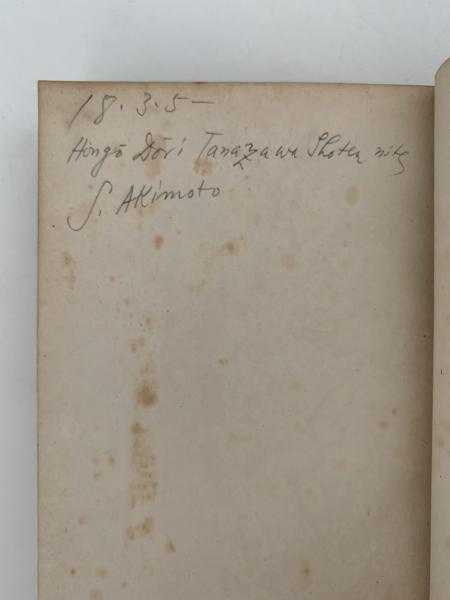 18.3.5—
Hongō Dōri Tanazawa Shoten nite
S. Akimoto